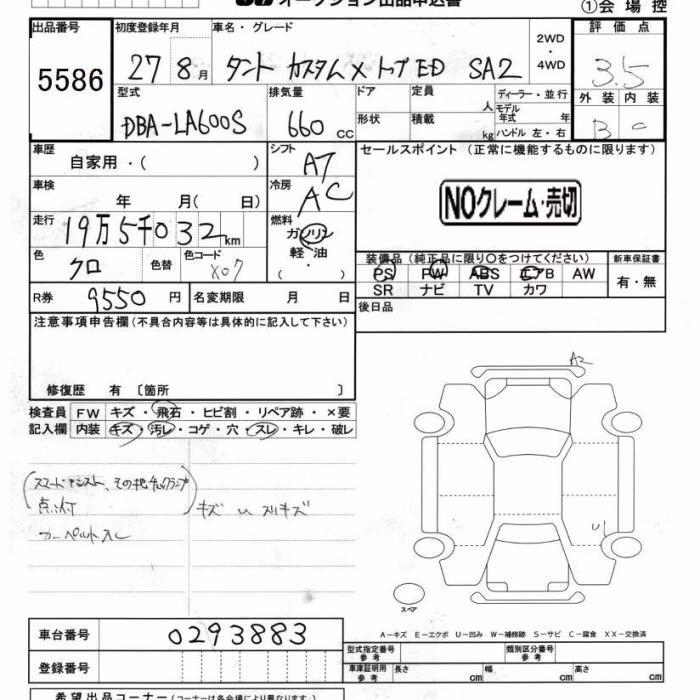 オークション出品申込書 ①会場控
出品番号 初度登録年月 車名・グレード 評価点
5586 27 8月 タント カスタムX トップED SA2 2WD・4WD 3.5
型式 排気量 ドア 定員 人 ディーラー・並行 外装 内装
DBA-LA600S 660cc 形状 積載 kg モデル年式 年 ハンドル 左・右 B C
車歴 シフト セールスポイント (正常に機能するものに限ります)
自家用・( ) AT
車検 冷房 NOクレーム・売切
年 月( 日) AC
走行 燃料
19万5千032km ガソリン
軽・油
・( )
装備品 (純正品に限り○をつけてください) 新車保証書
色 色替 色コード PS PW ABS エアB AW 有・無
クロ X07 SR ナビ TV カワ
R券 9550円 名変期限 月 日 後日品
注意事項申告欄 (不具合内容等は具体的に記入して下さい)
修復歴 有 〔箇所 〕
A2
検査員 FW キズ・飛石・ヒビ割・リペア跡・×要
記入欄 内装 キズ・汚レ・コゲ・穴・スレ・キレ・破レ
(スマートアシスト、その他チェックランプ
点灯) キズ U スリキズ
カーペットスレ
U1
スペア
A－キズ E－エクボ U－凹み W－補修跡 S－サビ C－腐食 XX－交換済
車台番号 0293883
型式指定番号 参考 類別区分番号 参考
登録番号 車庫証明用 参考 長さ cm 幅 cm 高さ cm
希望出品コーナー (コーナーは各会場により異なります)